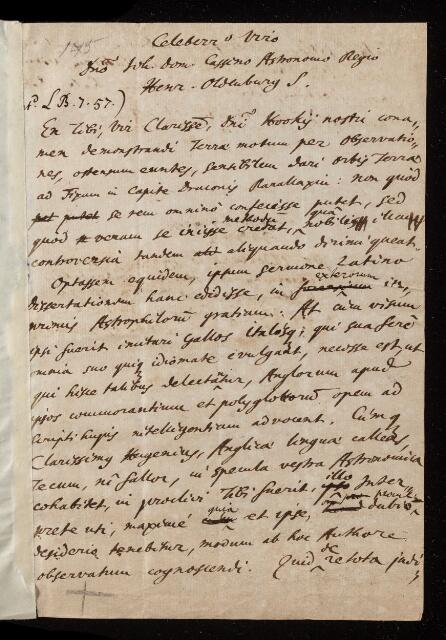 Celeberr° Viro
Dno Joh. Dom. Cassino Astronomo Regio
Henr. Oldenburg S.
(v. LB. 7. 57.)
En tibi, Vir Clarisse, Dni Hookij nostri cona,
men demonstrandi Terræ motum per observatio,
nes, ostensum euntes, sensibilem dari orbis Terræ
ad Fixam in Capite Draconis Parallaxin: non quod
se rem omnino confecisse putet, sed
quod veram se inisse methodum credat, qua nobilis illa
controversia tandem aliquando dirimi queat.
Optassem equidem, ipsum sermone Latino
dissertationem hanc edidisse, in exterorum
Astrophilorum gratiam: At cum visum
ipsi fuerit imitari Gallos Italosq; qui sua ferè
omnia suo quiq; idiomate evulgant, necesse est, ut
qui hisce talibus delectantur, Anglorum apud
ipsos commorantium et polyglottorum opem ad
scripti hujus intelligentiam advocent. Cumq
Clarissimus Hugenius, Anglicæ linguæ callens,
Tecum, ni fallor, in specula vestra Astronomica
cohabitet, in proclivi Tibi fuerit, illo Inter
prete uti, maxime quia et ipse, procul dubio
desiderio tenebitur, modum ab hoc Authore
observatum cognoscendi. Quid de re tota judi,